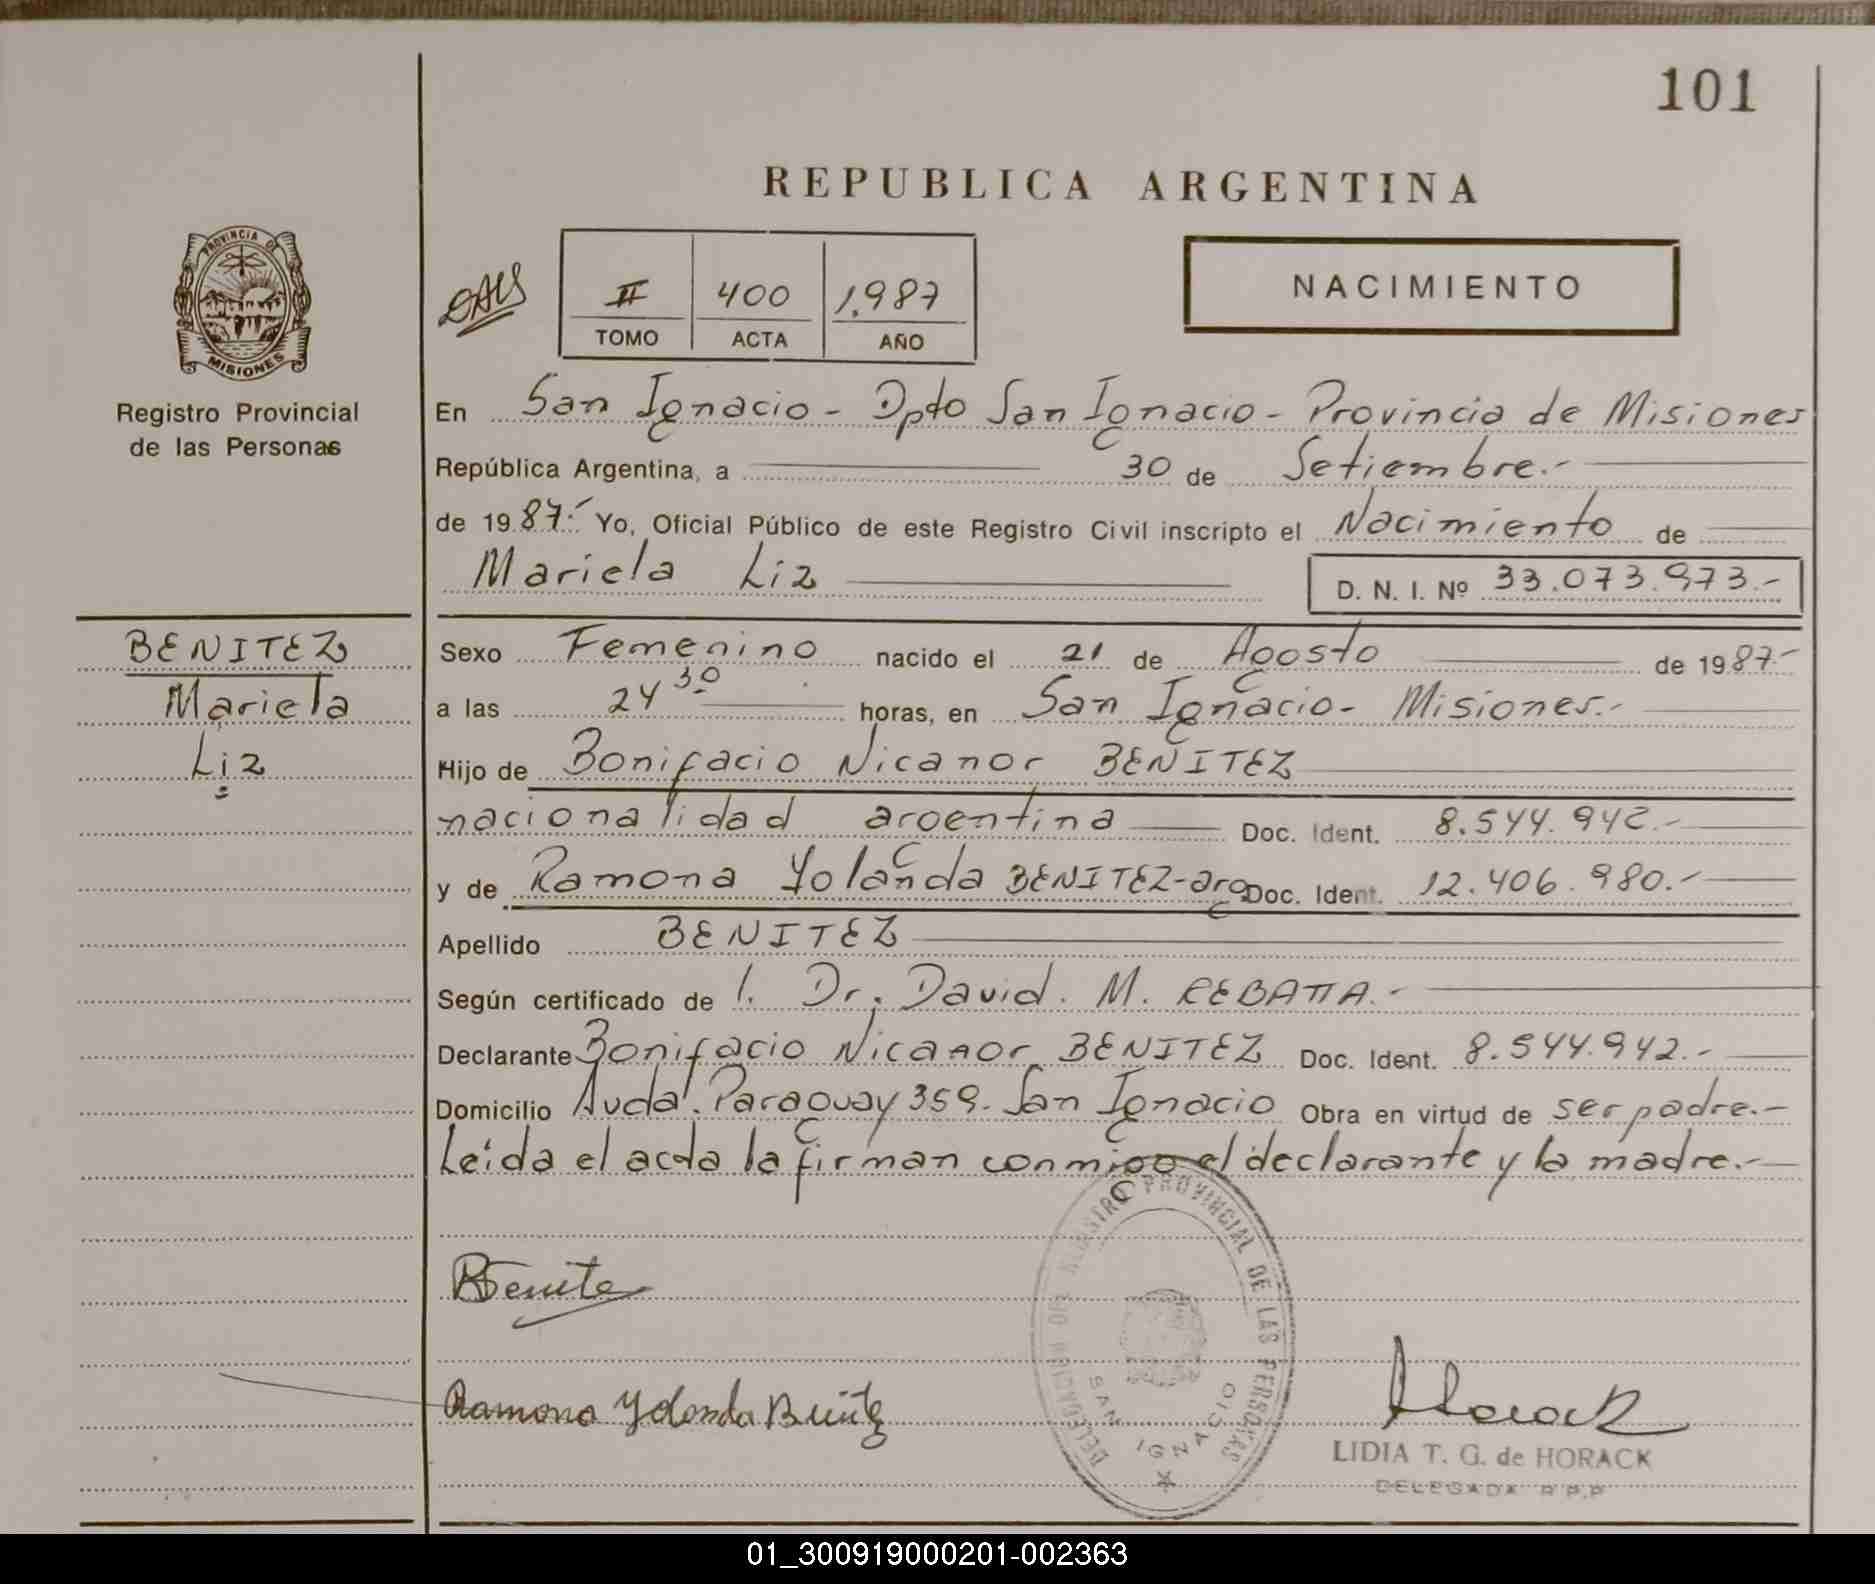 101
REPUBLICA ARGENTINA
PROVINCIA DE
MISIONES
Registro Provincial
de las Personas
II 400 1.987
TOMO ACTA AÑO
NACIMIENTO
En San Ignacio - Dpto San Ignacio - Provincia de Misiones
República Argentina, a 30 de Setiembre.-
de 1987.- Yo, Oficial Público de este Registro Civil inscripto el Nacimiento de
Mariela Liz D. N. I. Nº 33.073.973.-
BENITEZ
Mariela
Liz
Sexo Femenino nacido el 21 de Agosto de 1987.-
a las 24 30 horas, en San Ignacio - Misiones.-
Hijo de Bonifacio Nicanor BENITEZ
nacionalidad argentina Doc. Ident. 8.544.942.-
y de Ramona Yolanda BENITEZ-arg Doc. Ident. 12.406.980.-
Apellido BENITEZ
Según certificado de l. Dr. David. M. REBATTA.-
Declarante Bonifacio Nicanor BENITEZ Doc. Ident. 8.544.942.-
Domicilio Avda. Paraguay 359. San Ignacio Obra en virtud de ser padre.-
Leída el acta la firman conmigo el declarante y la madre.-
DELEGACION DEL REGISTRO PROVINCIAL DE LAS PERSONAS
SAN IGNACIO
BBenite
Ramona Yolanda Benitez
Horack
LIDIA T. G. de HORACK
DELEGADA R.P.P
01_300919000201-002363